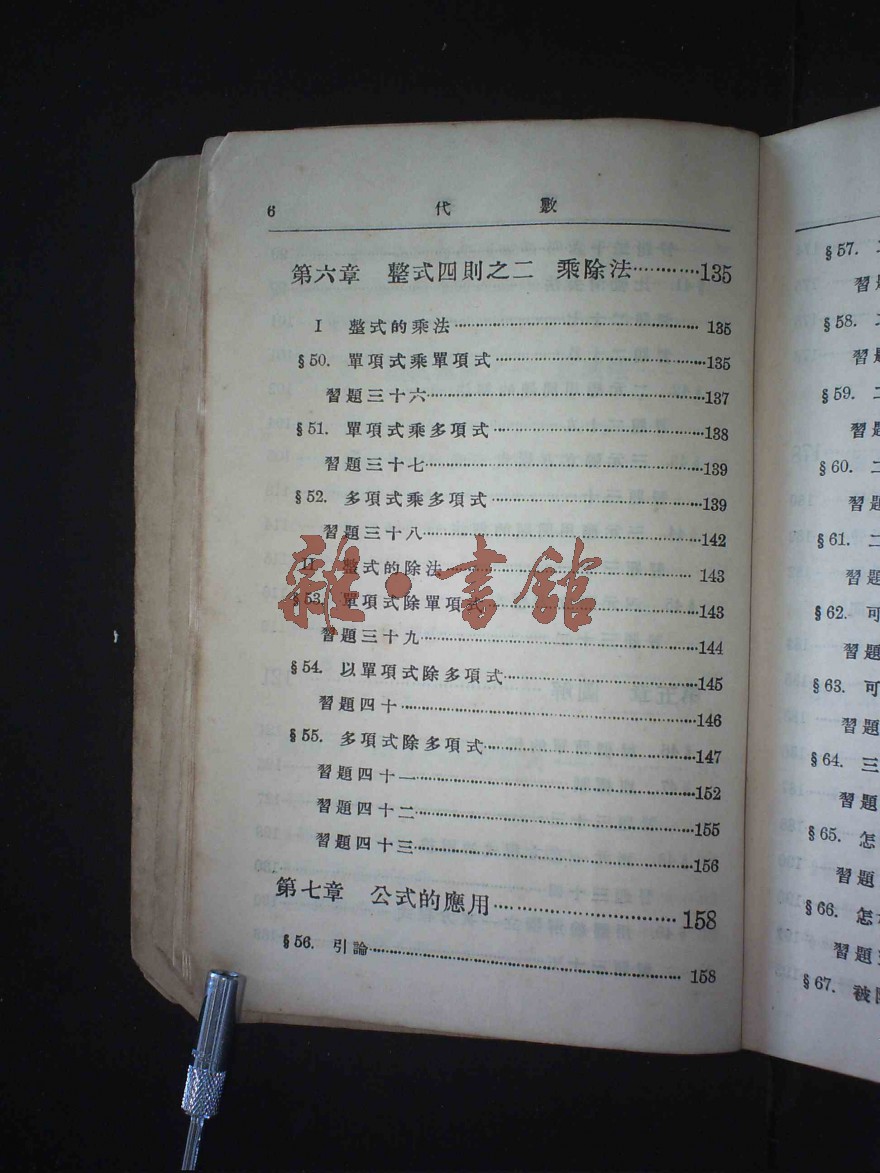 6 代 數
第六章 整式四則之二 乘除法…………135
I 整式的乘法……………………135
§50. 單項式乘單項式……………………135
習題三十六……………………137
§51. 單項式乘多項式……………………138
習題三十七……………………139
§52. 多項式乘多項式……………………139
習題三十八……………………142
II 整式的除法……………………143
§53. 單項式除單項式……………………143
習題三十九……………………144
§54. 以單項式除多項式……………………145
習題四十……………………146
§55. 多項式除多項式……………………147
習題四十一……………………152
習題四十二……………………155
習題四十三……………………156
第七章 公式的應用……………………158
§56. 引論……………………158
雜·書館
§57.
習
§58.
習
§59. 二
習題
§60. 二
習題
§61. 二
習題
§62. 可
習題
§63. 可
習題
§64. 三
習題
§65. 怎
習題
§66. 怎
習題
§67. 被